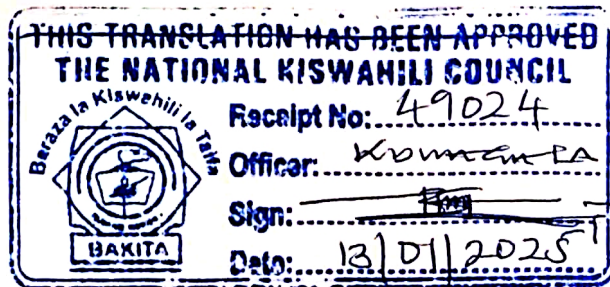 THIS TRANSLATION HAS BEEN APPROVED
THE NATIONAL KISWAHILI COUNCIL
Baraza la Kiswahili la Taifa
BAKITA
Receipt No: 49024
Officer:
Sign:
Date: 13/01/2025